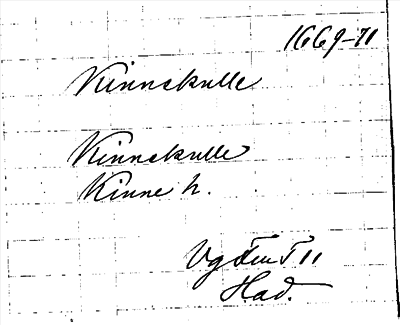 1669-71
Kinnekulle
Kinnekulle
Kinne h.
Vg
Had.